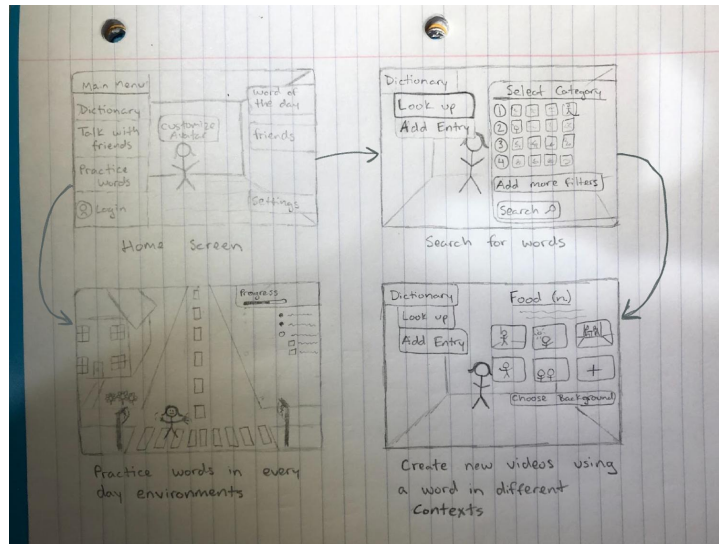 Main Menu
Dictionary
Talk with
friends
Practice
words
Login
customize
Avatar
word of
the day
friends
Settings
Home Screen
Dictionary
Look up
Add Entry
Select Category
1
2
3
4
Add more filters
Search
Search for words
Progress
Practice words in every
day environments
Dictionary
Look up
Add Entry
Food (n.)
+
Choose Background
Create new videos using
a word in different
contexts